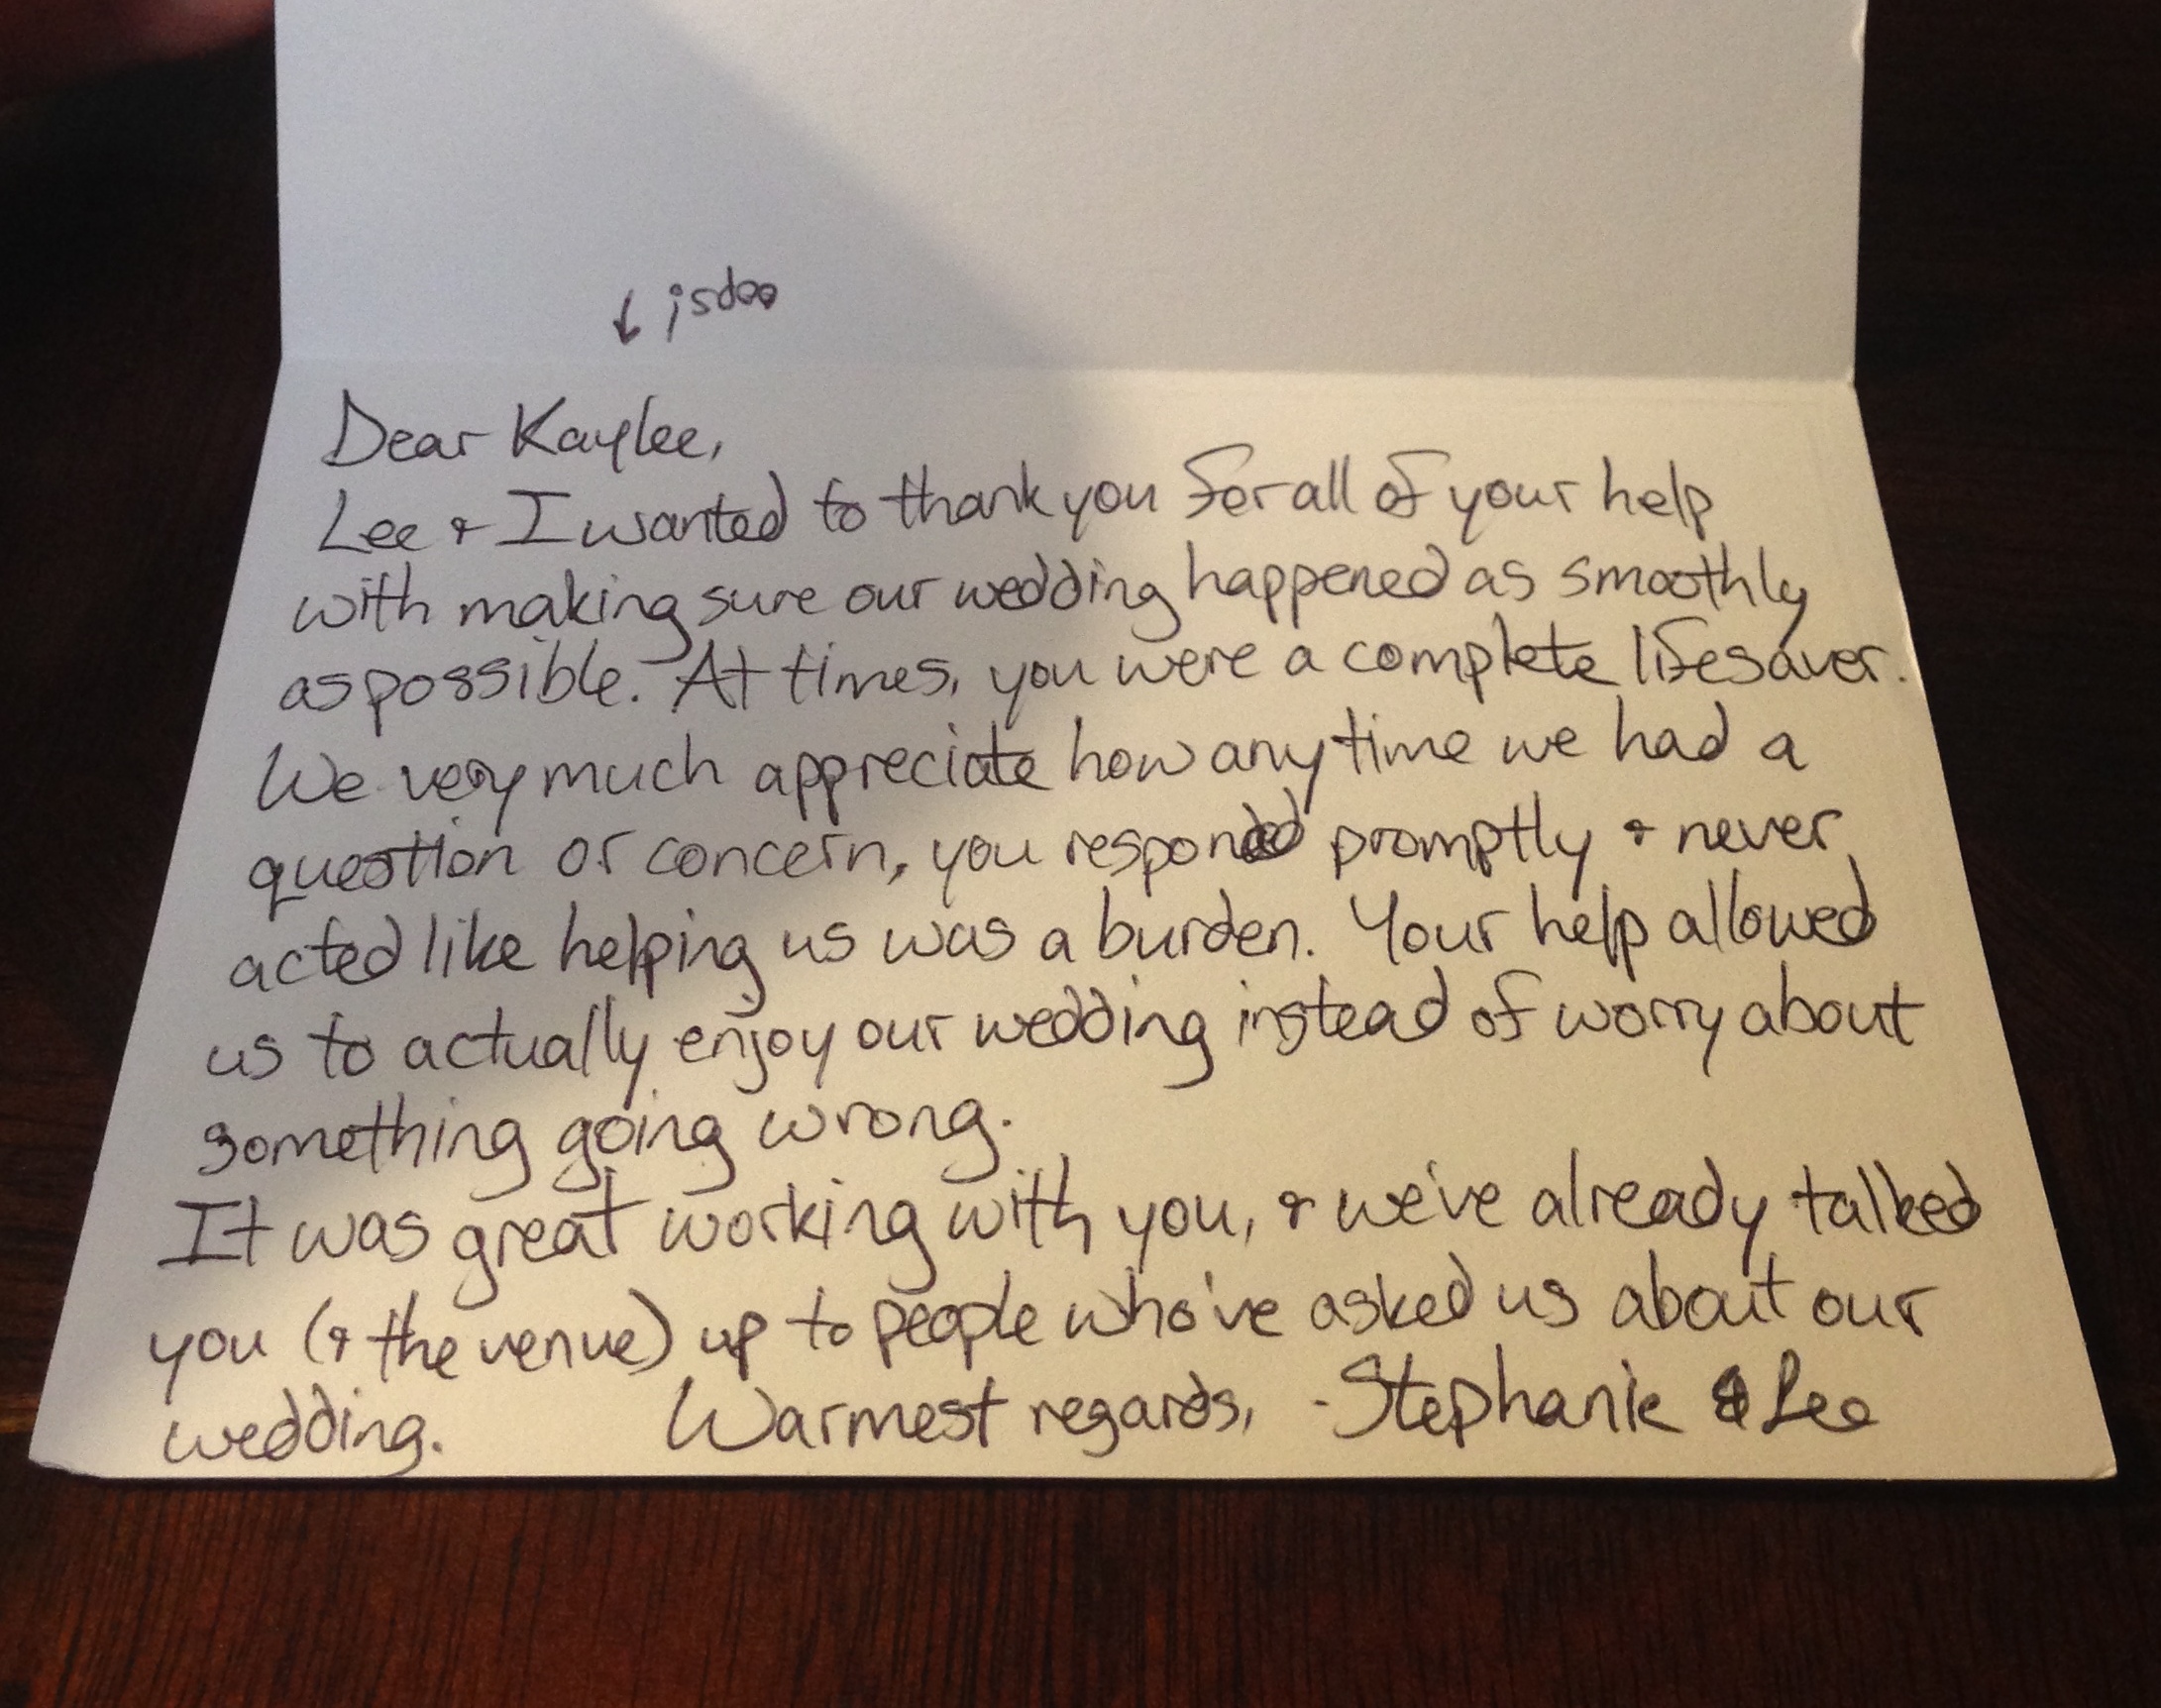 ↓ oops!
Dear Kaylee,
Lee & I wanted to thank you for all of your help
with making sure our wedding happened as smoothly
as possible. At times, you were a complete lifesaver.
We very much appreciate how anytime we had a
question or concern, you responded promptly & never
acted like helping us was a burden. Your help allowed
us to actually enjoy our wedding instead of worry about
something going wrong.
It was great working with you, & we've already talked
you (& the venue) up to people who've asked us about our
wedding. Warmest regards, -Stephanie & Lee